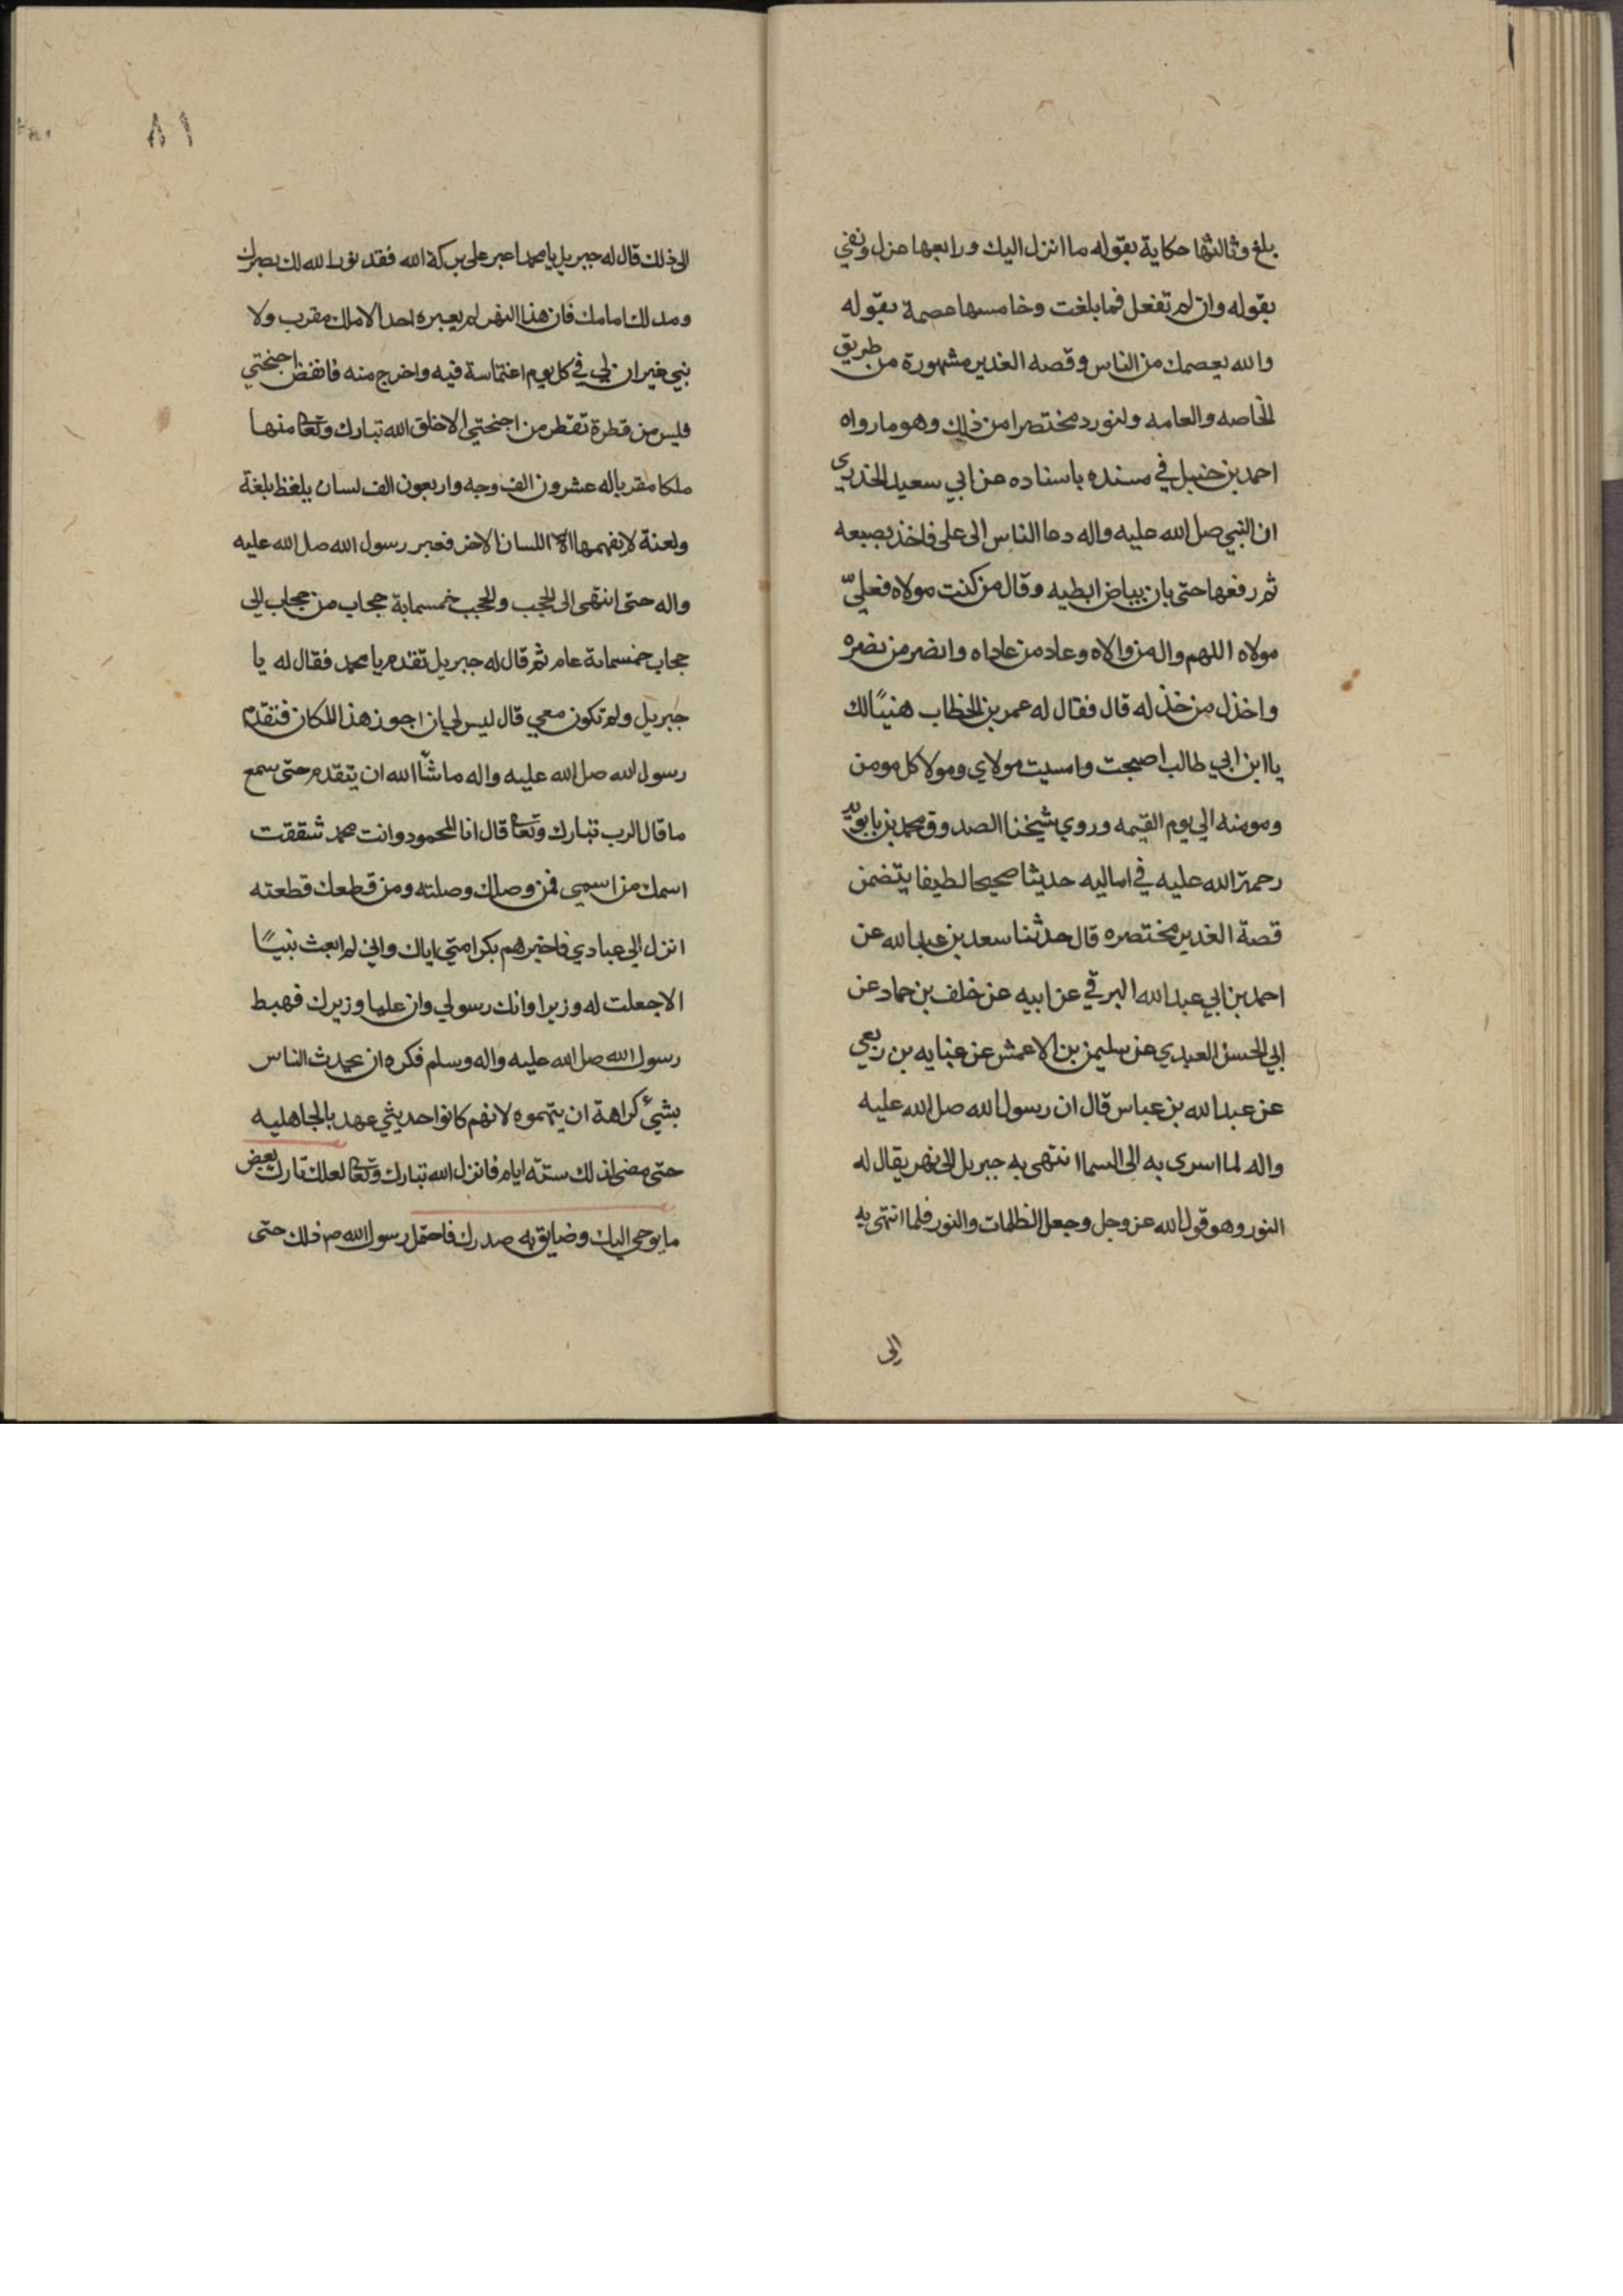 بلغ وثالثها حكاية بقوله ما انزل اليك ورابعها عزل ونفي
بقوله وان لم تفعل فما بلغت وخامسها عصمة بقوله
والله يعصمك من الناس وقصه الغدير مشهورة من طريق
الخاصه والعامه ولنورد مختصرا من ذلك وهو ما رواه
احمد بن حنبل في مسنده باسناده عن ابي سعيد الخدري
ان النبي صل الله عليه واله دعا الناس الى على فاخذ بصبعه
ثم رفعها حتى بان بياض ابطيه وقال من كنت مولاه فعليّ
مولاه اللهم وال من والاه وعاد من عاداه وانصر من نصره
واخذل من خذله قال فقال له عمر بن الخطاب هنيًا لك
يا ابن ابي طالب اصبحت وامسيت مولاي ومولا كل مومن
ومومنه الي يوم القيمه وروي شيخنا الصدوق محمد بن بابويه
رحمة الله عليه في اماليه حديثا صحيحا لطيفا يتضمن
قصة الغدير مختصره قال حدثنا سعد بن عبد الله عن
احمد بن ابي عبد الله البرقي عن ابيه عن خلف بن حماد عن
ابي الحسن العبدي عن سليمن بن الاعمش عن عبايه بن ربعي
عن عبد الله بن عباس قال ان رسول الله صل الله عليه
واله لما اسرى به الى السما انتهى به جبريل الى نهر يقال له
النور وهو قول الله عز وجل وجعل الظلمات والنور فلما انتهى به
الى
٨١
الى ذلك قال له جبريل يا محمد اعبر على بركة الله فقد نور الله لك بصرك
ومد لك امامك فان هذا النهر لم يعبره احد لا ملك مقرب ولا
نبي غير ان لي في كل يوم اغتماسة فيه واخرج منه فانفض اجنحتي
فليس من قطرة تقطر من اجنحتي الا خلق الله تبارك وتعا منها
ملكا مقربا له عشرون الف وجه واربعون الف لسان يلغظ بلغة
ولعنة لا يفهمها الا اللسان الاخر فعبر رسول الله صل الله عليه
واله حتى انتهى الى الحجب والحجب خمسماية حجاب من حجاب الى
حجاب خمسماية عام ثم قال له جبريل تقدم يا محمد فقال له يا
جبريل ولم تكون معي قال ليس لي ان اجوز هذا المكان فتقدم
رسول الله صل الله عليه واله ما شآ الله ان يتقدم حتى سمع
ما قال الرب تبارك وتعا قال انا المحمود وانت محمد شققت
اسمك من اسمي فمن وصلك وصلته ومن قطعك قطعته
انزل الي عبادي فاخبرهم بكرامتي اياك واني لم ابعث نبيًا
الا جعلت له وزيرا وانك رسولي وان عليا وزيرك فهبط
رسول الله صل الله عليه واله وسلم فكره ان يحدث الناس
بشئ كراهة ان يتهموه لانهم كانوا حديثي عهد بالجاهليه
حتى مضى لذلك ستة ايام فانزل الله تبارك وتعا لعلك تارك بعض
ما يوحي اليك وضايق به صدرك فاحتمل رسول الله ص ذلك حتى